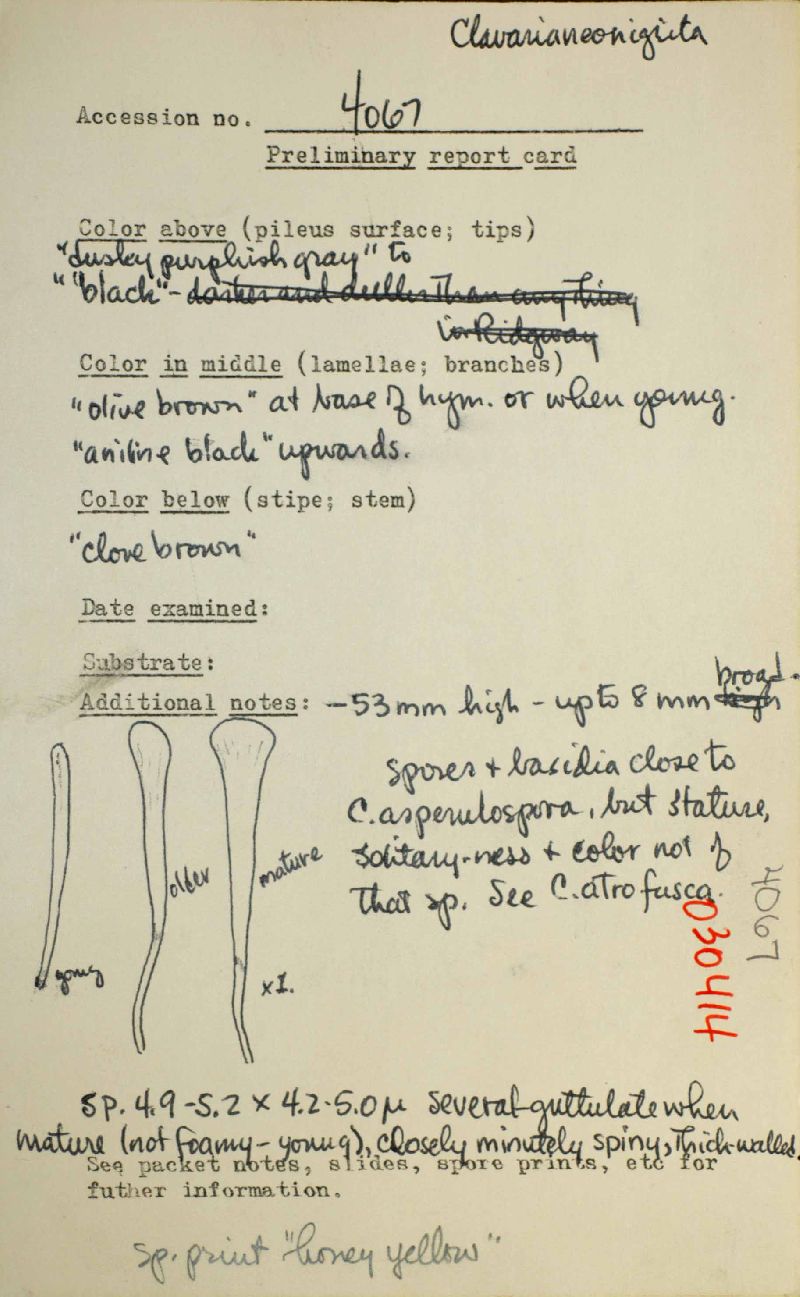 Clavarianeonigrita
Accession no. 4067
Preliminary report card
Color above (pileus surface; tips)
"dusky purplish gray" to
"black" - darker and duller than anything
in Ridgway
Color in middle (lamellae; branches)
"olive brown" at base of hym. or when young.
"aniline black" upwards.
Color below (stipe; stem)
"clove brown"
Date examined:
Substrate:
broad.
Additional notes: - 53 mm high - up to 8 mm high
Spores + basidia close to
C. asperulospora, but stature,
solitary-ness + color not of
that sp. See C. atrofusca.
young
older
mature
x1.
4067
030414
Sp. 4.9-5.2 x 4.2-5.0 µ several-guttulate when
mature (not foamy - young), closely minutely spiny, thick-walled.
See packet notes, slides, spore prints, etc for
futher information.
sp. print "honey yellow"